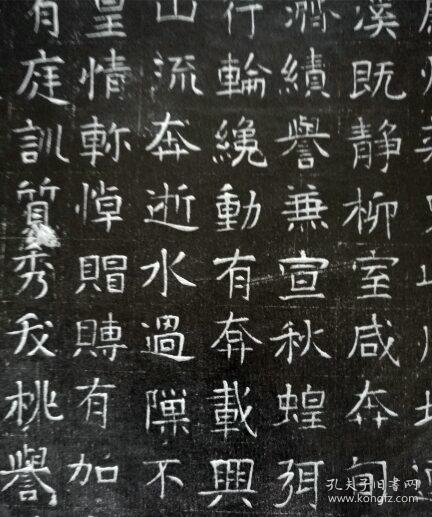 溪既靜柳室咸奔
濟績譽兼宣秋蝗弭
行輪纔動有奔載興
山流奔逝水過隟不
皇情軫悼賵賻有加
有庭訓質秀桃譽
孔夫子旧书网
kongfz.com